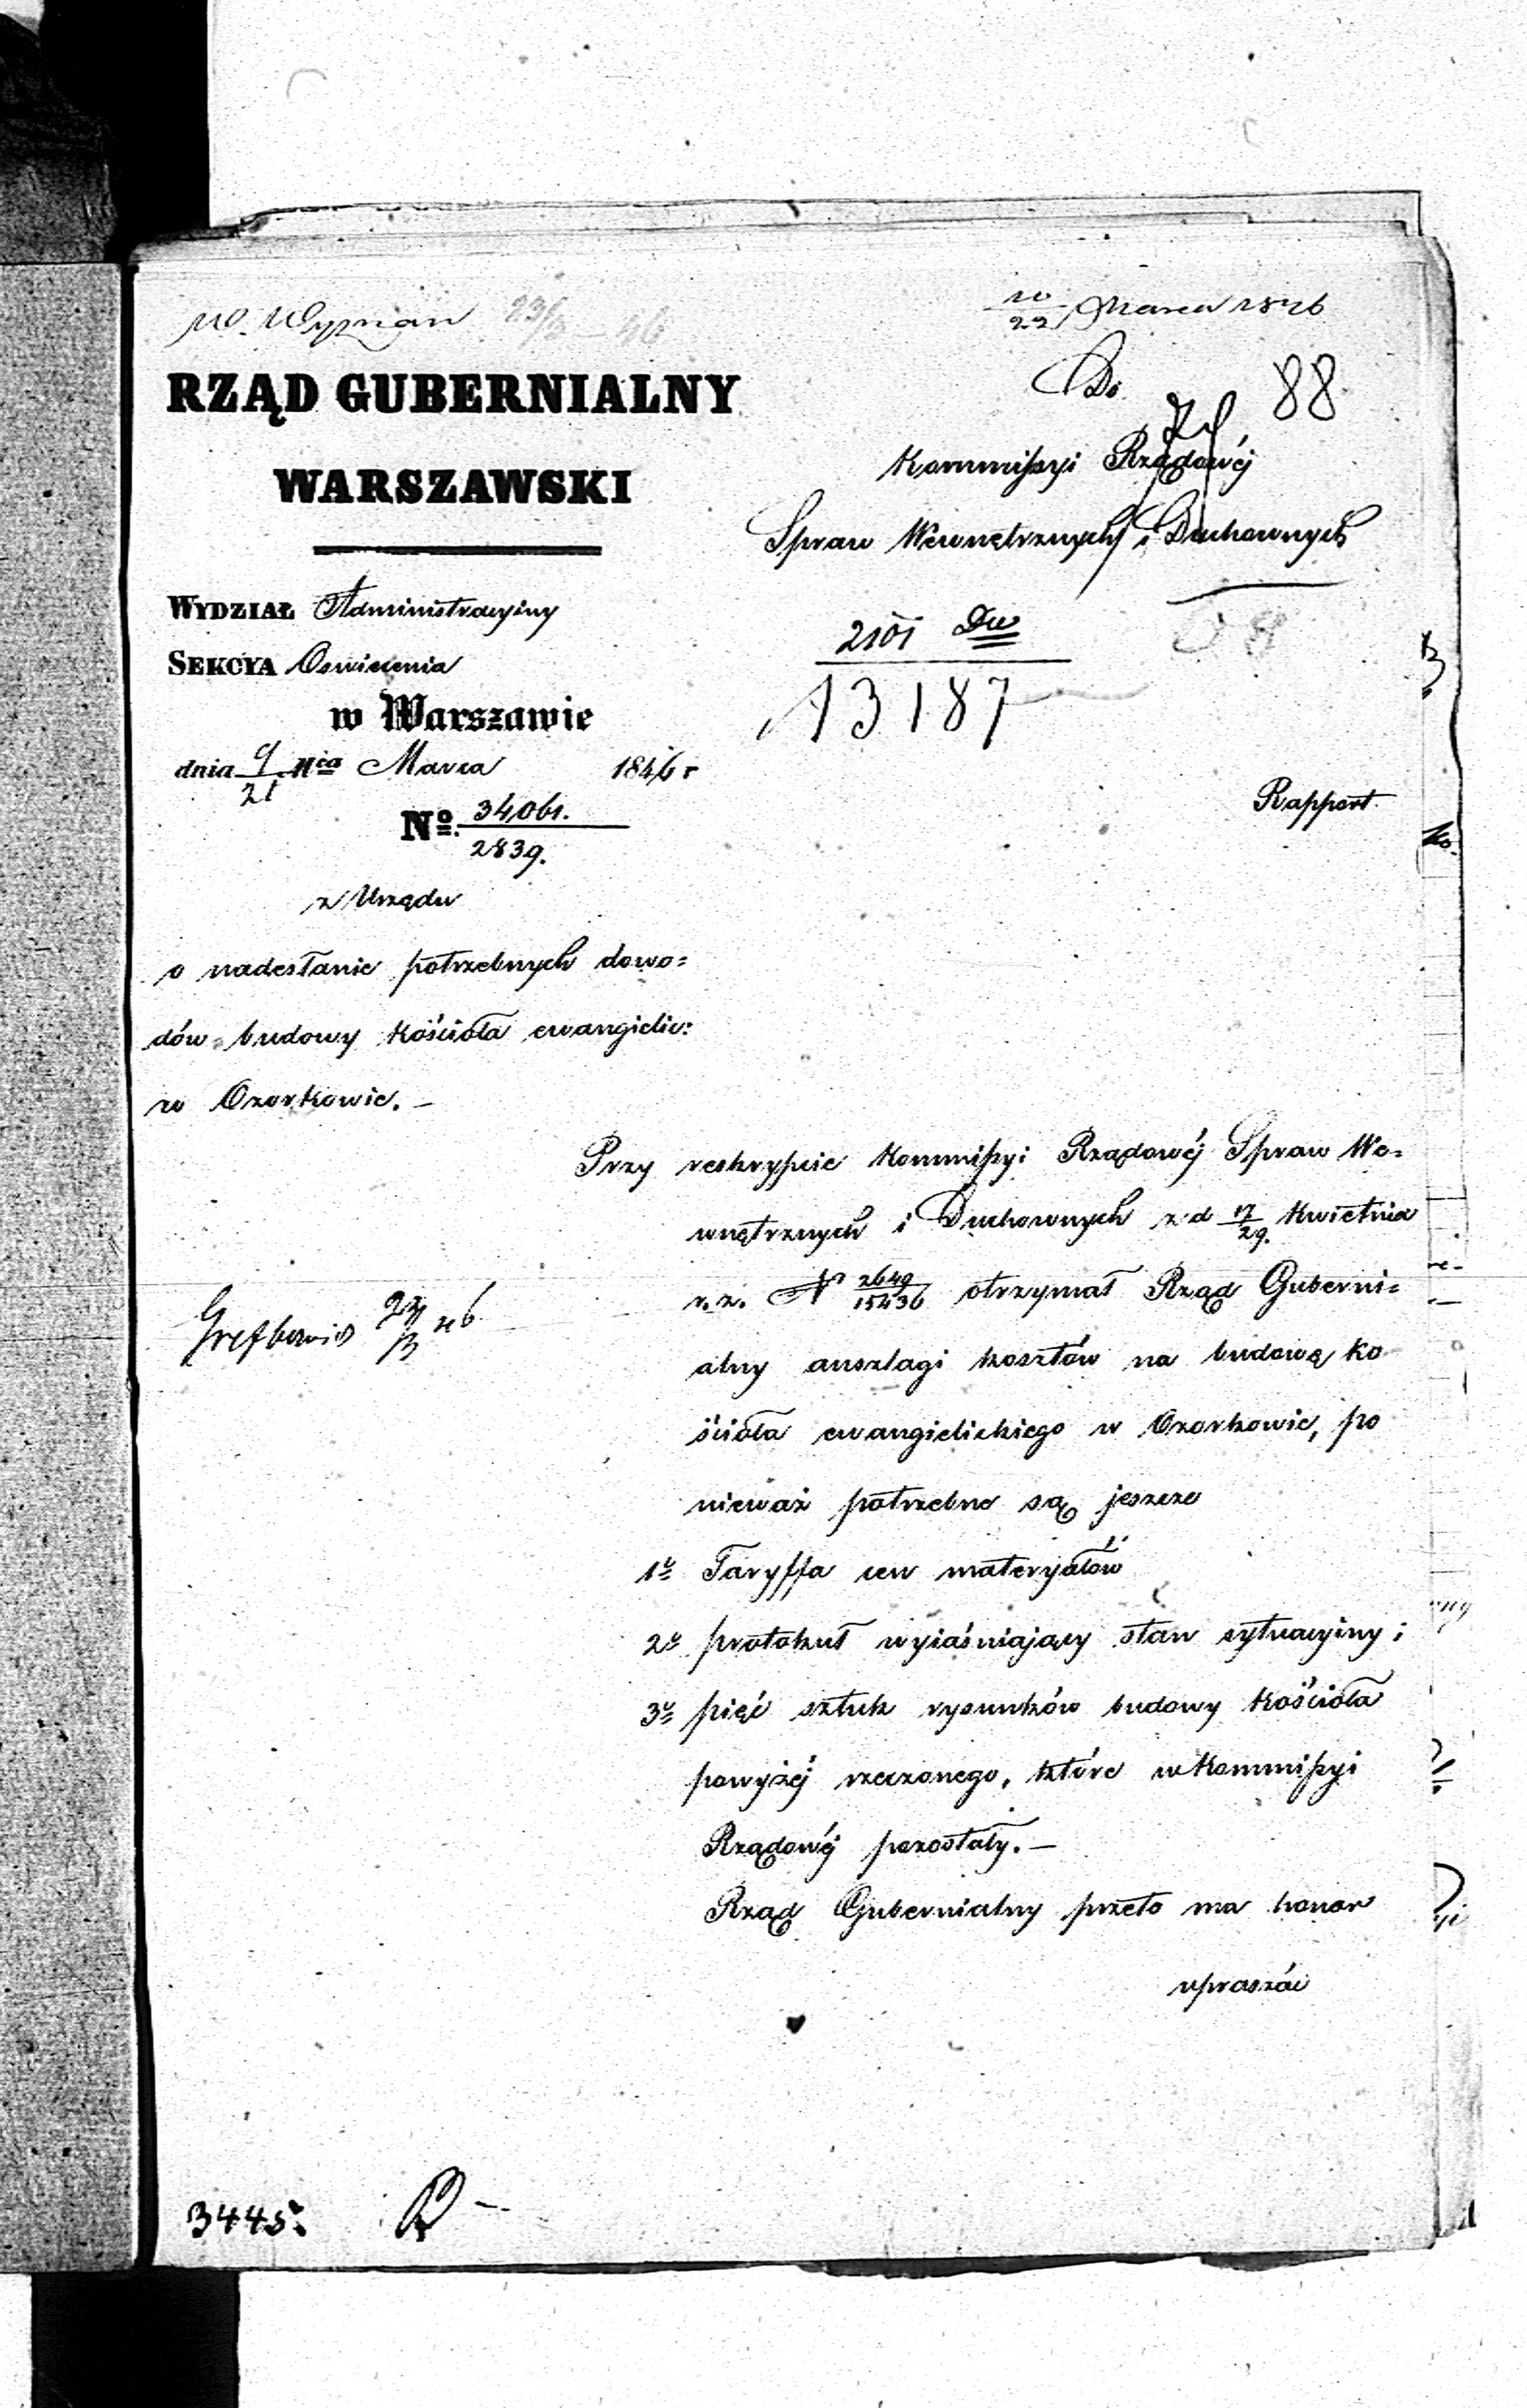 W. Wyznań 23/3 46
10/22 Marca 1846
RZĄD GUBERNIALNY
WARSZAWSKI
Do
88
Kommissyi Rządowéj
Spraw Wewnętrznych i Duchownych
WYDZIAŁ Administracyiny
SEKCYA Oswiecenia
w Warszawie
dnia 9/21 Mca Marca 1846 r
No. 34061./2839.
2101 Dw
13187
58
Rapport
z Urzędu
o nadesłanie potrzebnych dowo=
dów budowy kościoła ewangielic:
w Ozorkowie. –
Przy reskrypcie Kommissyi Rządowéj Spraw We=
wnętrznych i Duchownych z d 17/29. Kwietnia
r. z. N 2649/15436 otrzymał Rząd Guberni=
alny anszlagi kosztów na budowę ko
ścioła ewangielickiego w Ozorkowie, po
nieważ potrzebne są jeszcze
1o Taryffa cen materyałów
2o protokuł wyiaśniający stan sytuacyiny i
3o pięć sztuk rysunków budowy kościoła
powyżéj rzeczonego, które w Kommissyi
Rządowéj pozostały. –
Rząd Gubernialny przeto ma honor
upraszać
3445.